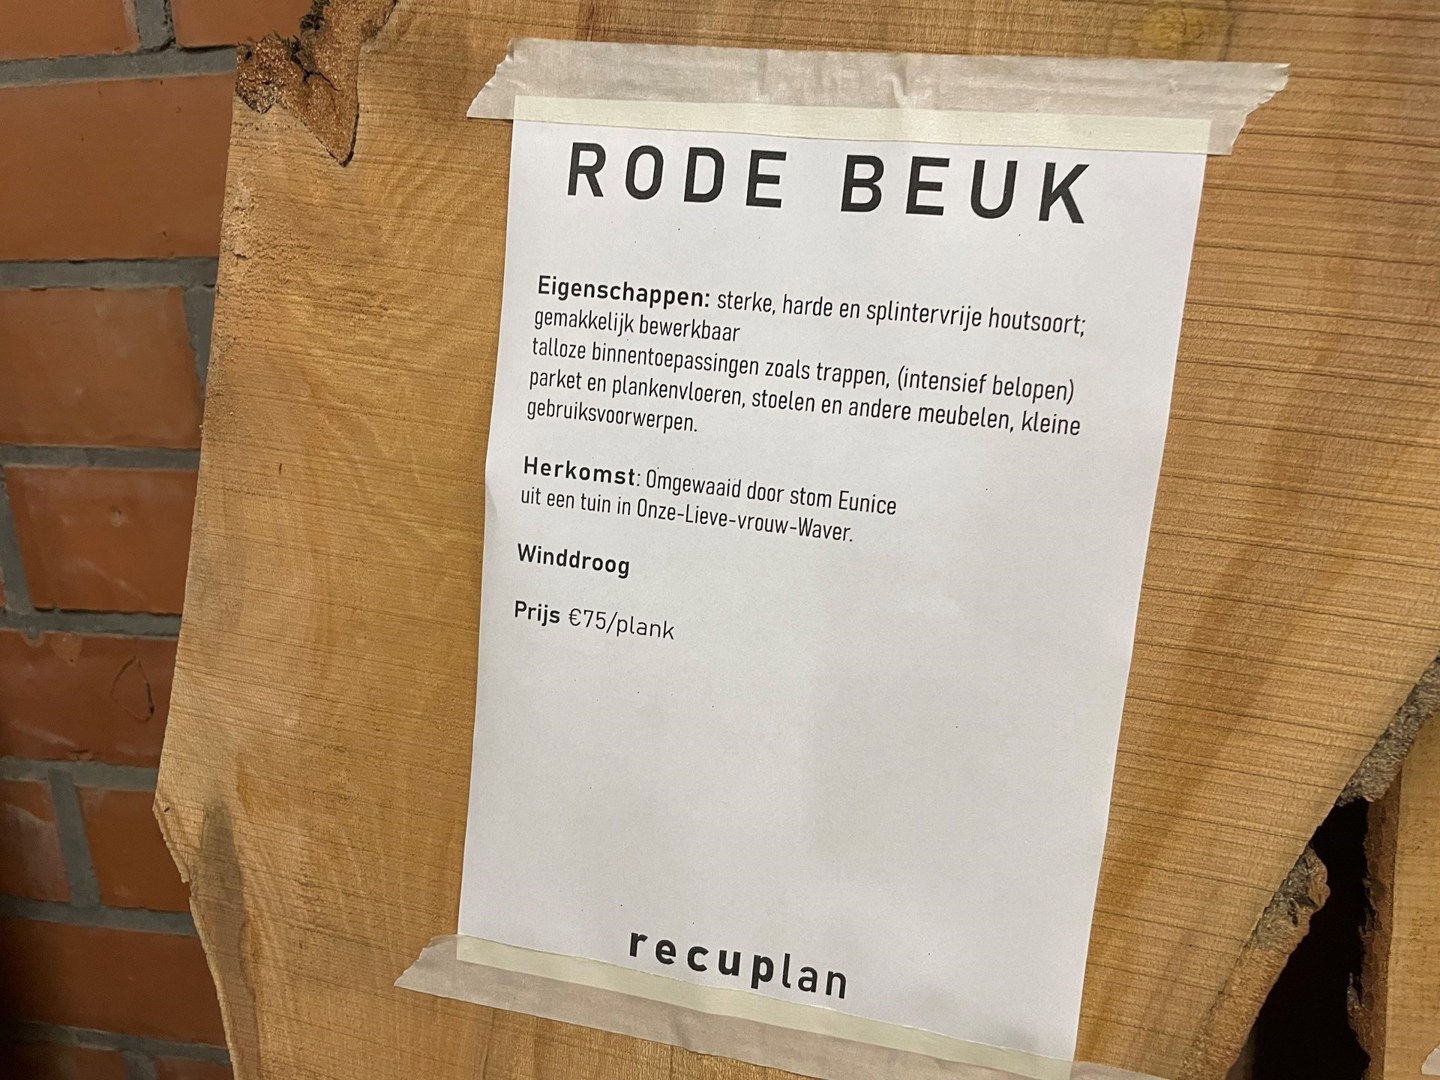 RODE BEUK
Eigenschappen: sterke, harde en splintervrije houtsoort;
gemakkelijk bewerkbaar
talloze binnentoepassingen zoals trappen, (intensief belopen)
parket en plankenvloeren, stoelen en andere meubelen, kleine
gebruiksvoorwerpen.
Herkomst: Omgewaaid door stom Eunice
uit een tuin in Onze-Lieve-vrouw-Waver.
Winddroog
Prijs €75/plank
recuplan